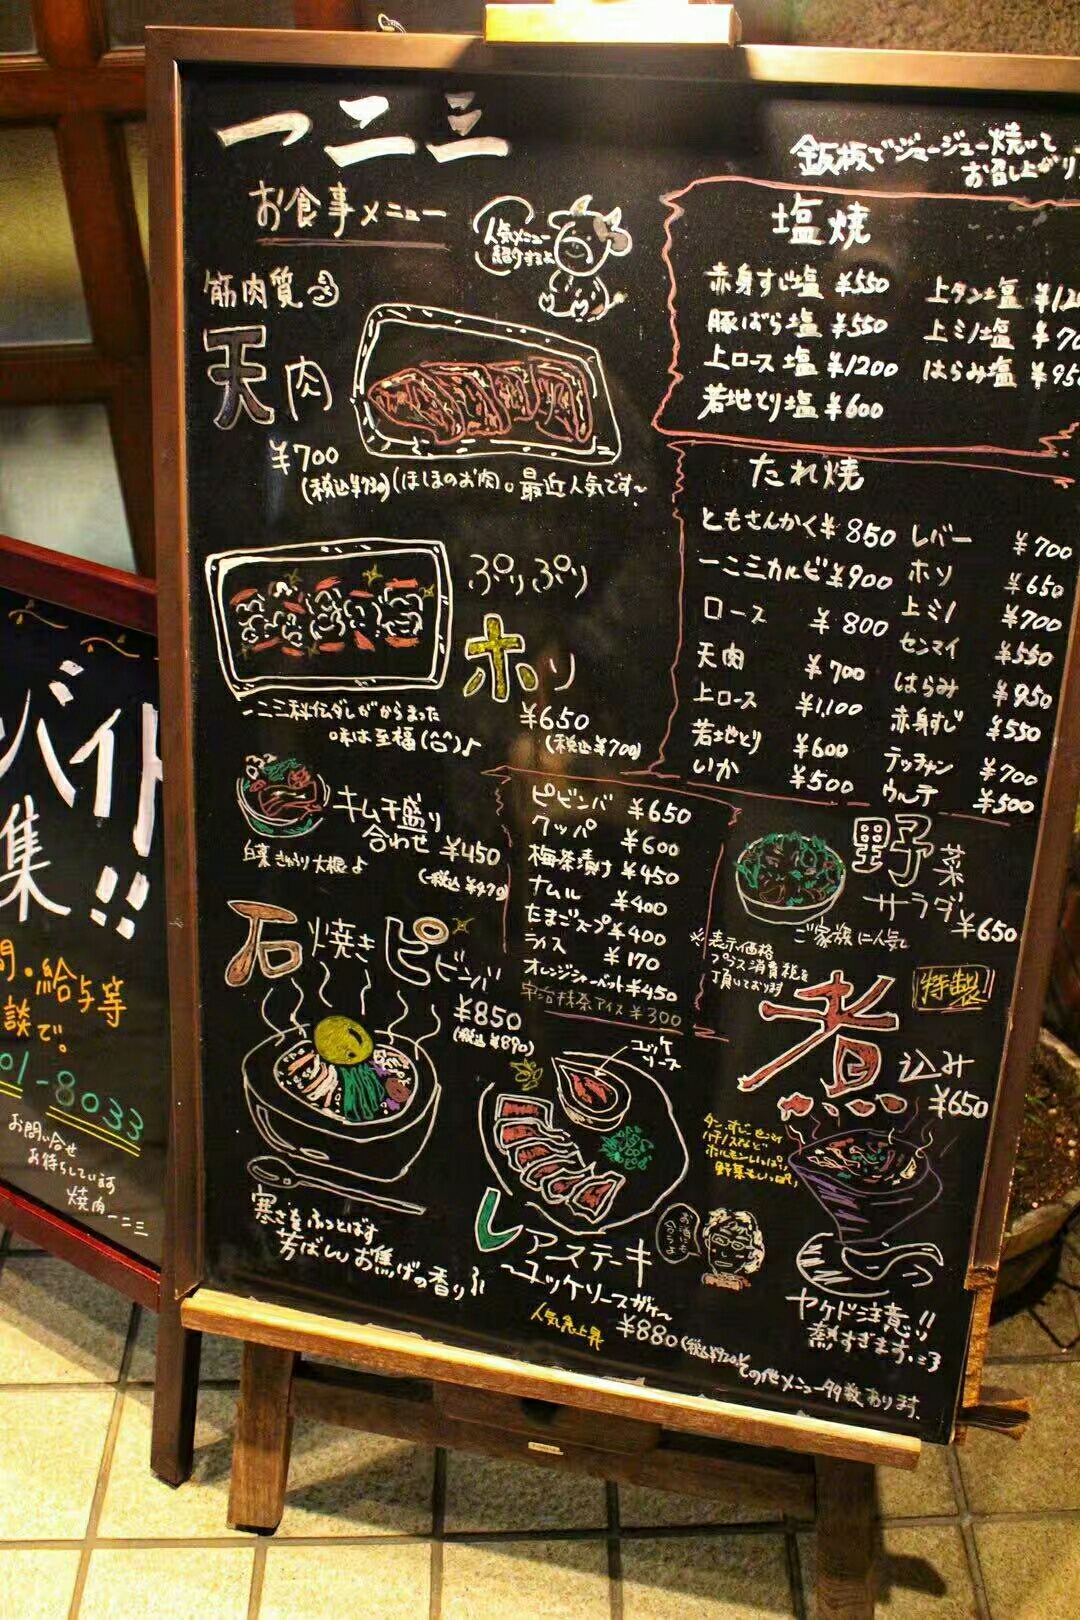 一二三
お食事メニュー
人気メニュー
紹介するよ
筋肉質な
天肉
¥700
(ほほのお肉)。最近人気です~
ぷりぷり
ホソ
¥650
(税込¥700)
一二三秘伝ダレがからまった
味は至福(^^)♪
キムチ盛り
合わせ ¥450
白菜きゅうり大根よ
石焼きピビンバ
¥850
(税込¥890)
寒さをふっとばす
芳ばしいお焦げの香り
鉄板でジュージュー焼いて
お召し上がり
塩焼
赤身すじ塩 ¥550
豚ばら塩 ¥550
上ロース塩 ¥1200
若地どり塩 ¥600
上タン塩
上ミノ塩
はらみ塩 ¥950
たれ焼
ともさんかく ¥850
一二三カルビ ¥900
ロース ¥800
天肉 ¥700
上ロース ¥1,100
若地どり ¥600
いか ¥500
レバー ¥700
ホソ ¥650
上ミノ ¥700
センマイ ¥550
はらみ ¥950
赤身すじ ¥550
テッチャン ¥700
ウルテ ¥500
ピビンバ ¥650
クッパ ¥600
梅茶漬け ¥450
ナムル ¥400
たまごスープ ¥400
ライス ¥170
オレンジシャーベット ¥450
宇治抹茶アイス ¥300
※表示価格
プラス消費税を
頂いております
野菜
サラダ ¥650
ご家族に人気
特製
煮込み
¥650
野菜もいっぱい
ヤケド注意!!
熱すぎます
ユッケ
ソース
レアーステーキ
~ユッケソースがけ~
人気急上昇
¥880
その他メニュー多数あります。
バイト
集!!
給与等
談で。
01-8033
お問い合せ
お待ちしています
焼肉一二三